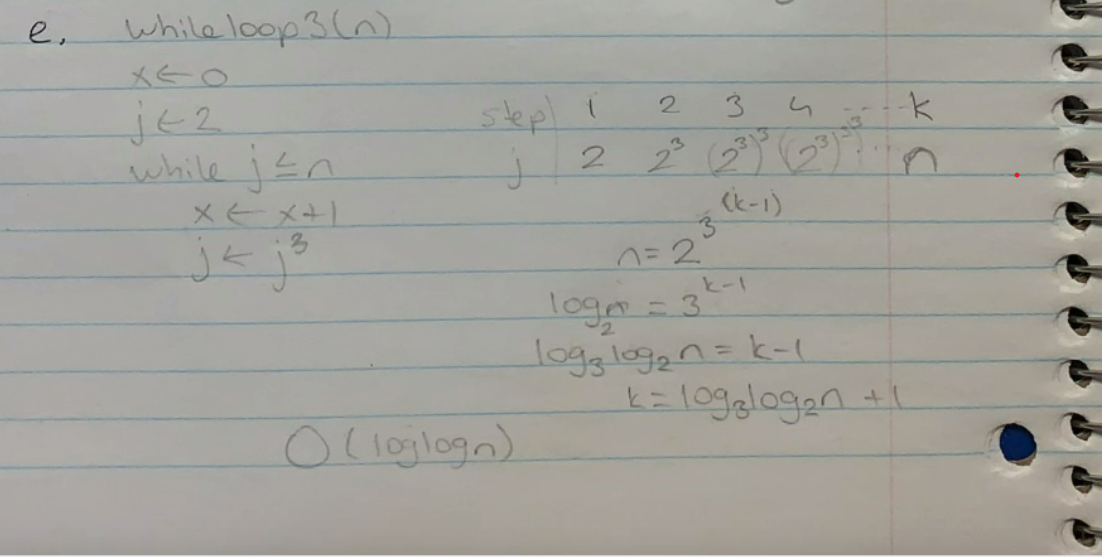 e. whileloop3(n)
x ← 0
j ← 2
while j ≤ n
x ← x+1
j ← j³
step | 1 2 3 4 ---- k
j | 2 2³ (2³)³ ((2³)³)³ ... n
n = 2^3^(k-1)
log₂n = 3^k-1
log₃log₂n = k-1
k = log₃log₂n + 1
O(loglogn)